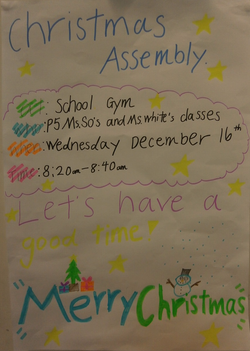 Christmas
Assembly.
: School Gym
: P5 Ms.So's and Ms White's classes
: Wednesday December 16th
: 8:20am-8:40am
Let's have a
good time!
"Merry Christmas"